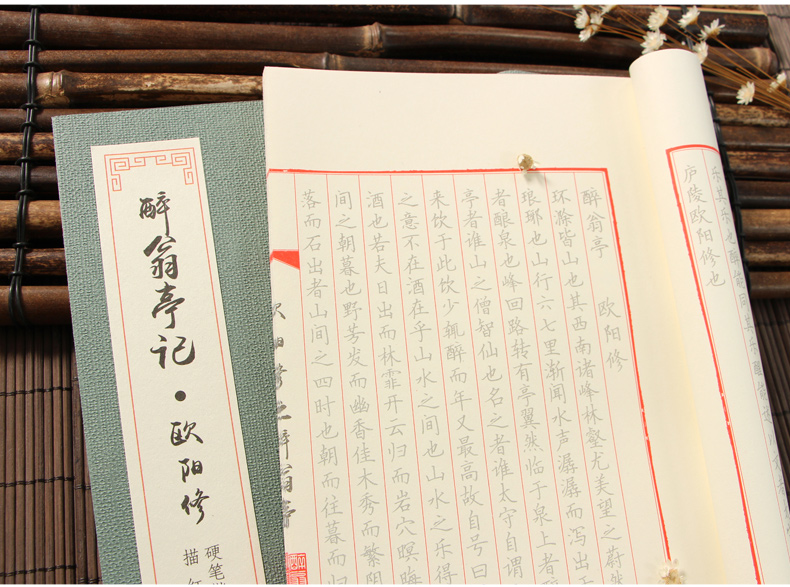 醉翁亭记·欧阳修
硬笔
描红
醉翁亭 欧阳修
环滁皆山也其西南诸峰林壑尤美望之蔚然
琅琊也山行六七里渐闻水声潺潺而泻出于
者酿泉也峰回路转有亭翼然临于泉上者醉
亭者谁山之僧智仙也名之者谁太守自谓
来饮于此饮少辄醉而年又最高故自号曰
之意不在酒在乎山水之间也山水之乐得
酒也若夫日出而林霏开云归而岩穴暝晦
间之朝暮也野芳发而幽香佳木秀而繁阴
落而石出者山间之四时也朝而往暮而归
欧阳修之醉翁亭
乐其乐也醉能同其乐醒能
庐陵欧阳修也